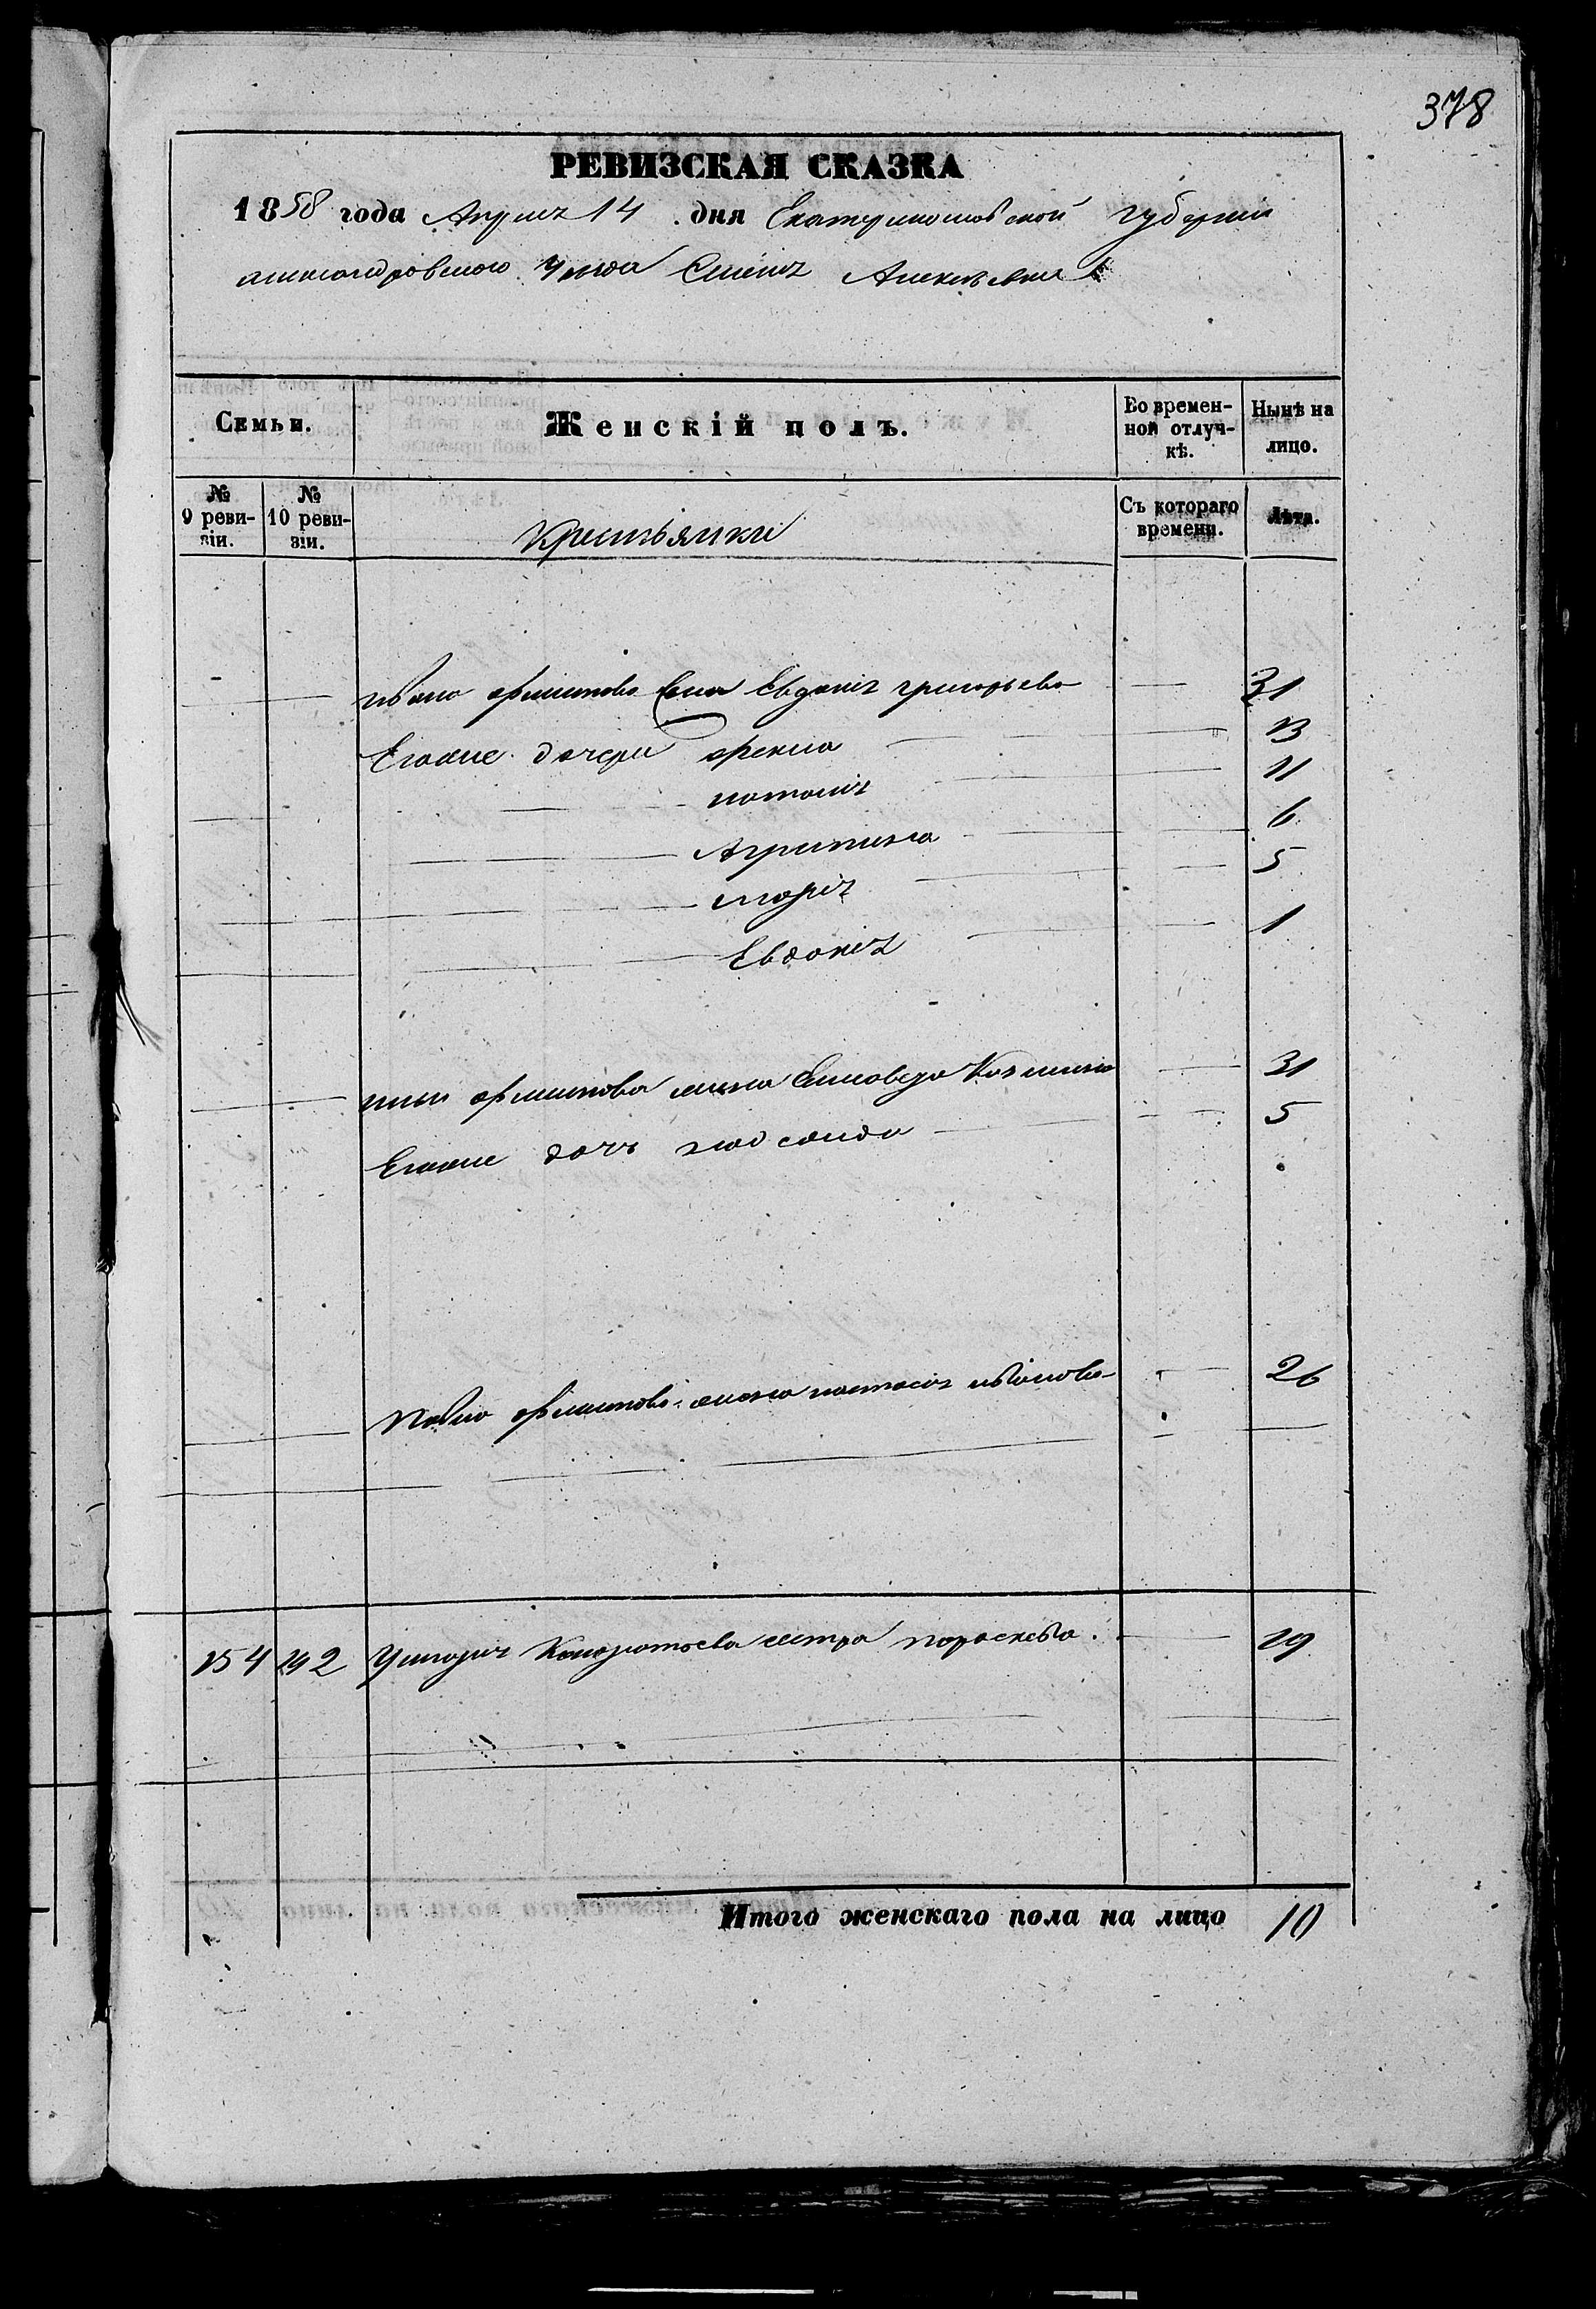 378
РЕВИЗСКАЯ СКАЗКА
1858 года Апреля 14 дня Екатеринославской губернии
александровского Уезда Селения Алексеевки
Семьи.
Женскій полъ.
Во времен-
ной отлуч-
кѣ.
Нынѣ на
лицо.
№
9 реви-
зіи.
№
10 реви-
зіи.
Крестьянки
Съ котораго
времени.
Лѣта.
ивана филипова жена Евдокия григорьева 31
Еговые дочери фекла 13
наталия 11
Агрипина 6
мария 5
Евдокия 1
филипова жена Елисавета Козмина 31
Еговые дочь 5
павла филипова жена настасия иванова 26
154 192 Умария Кондратьева сестра параскева 29
Итого женскаго пола на лицо 10